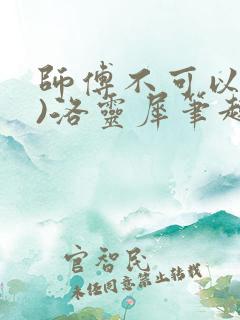 師傅不可以
)洛靈犀筆趣
官智民
未经同意禁止转载